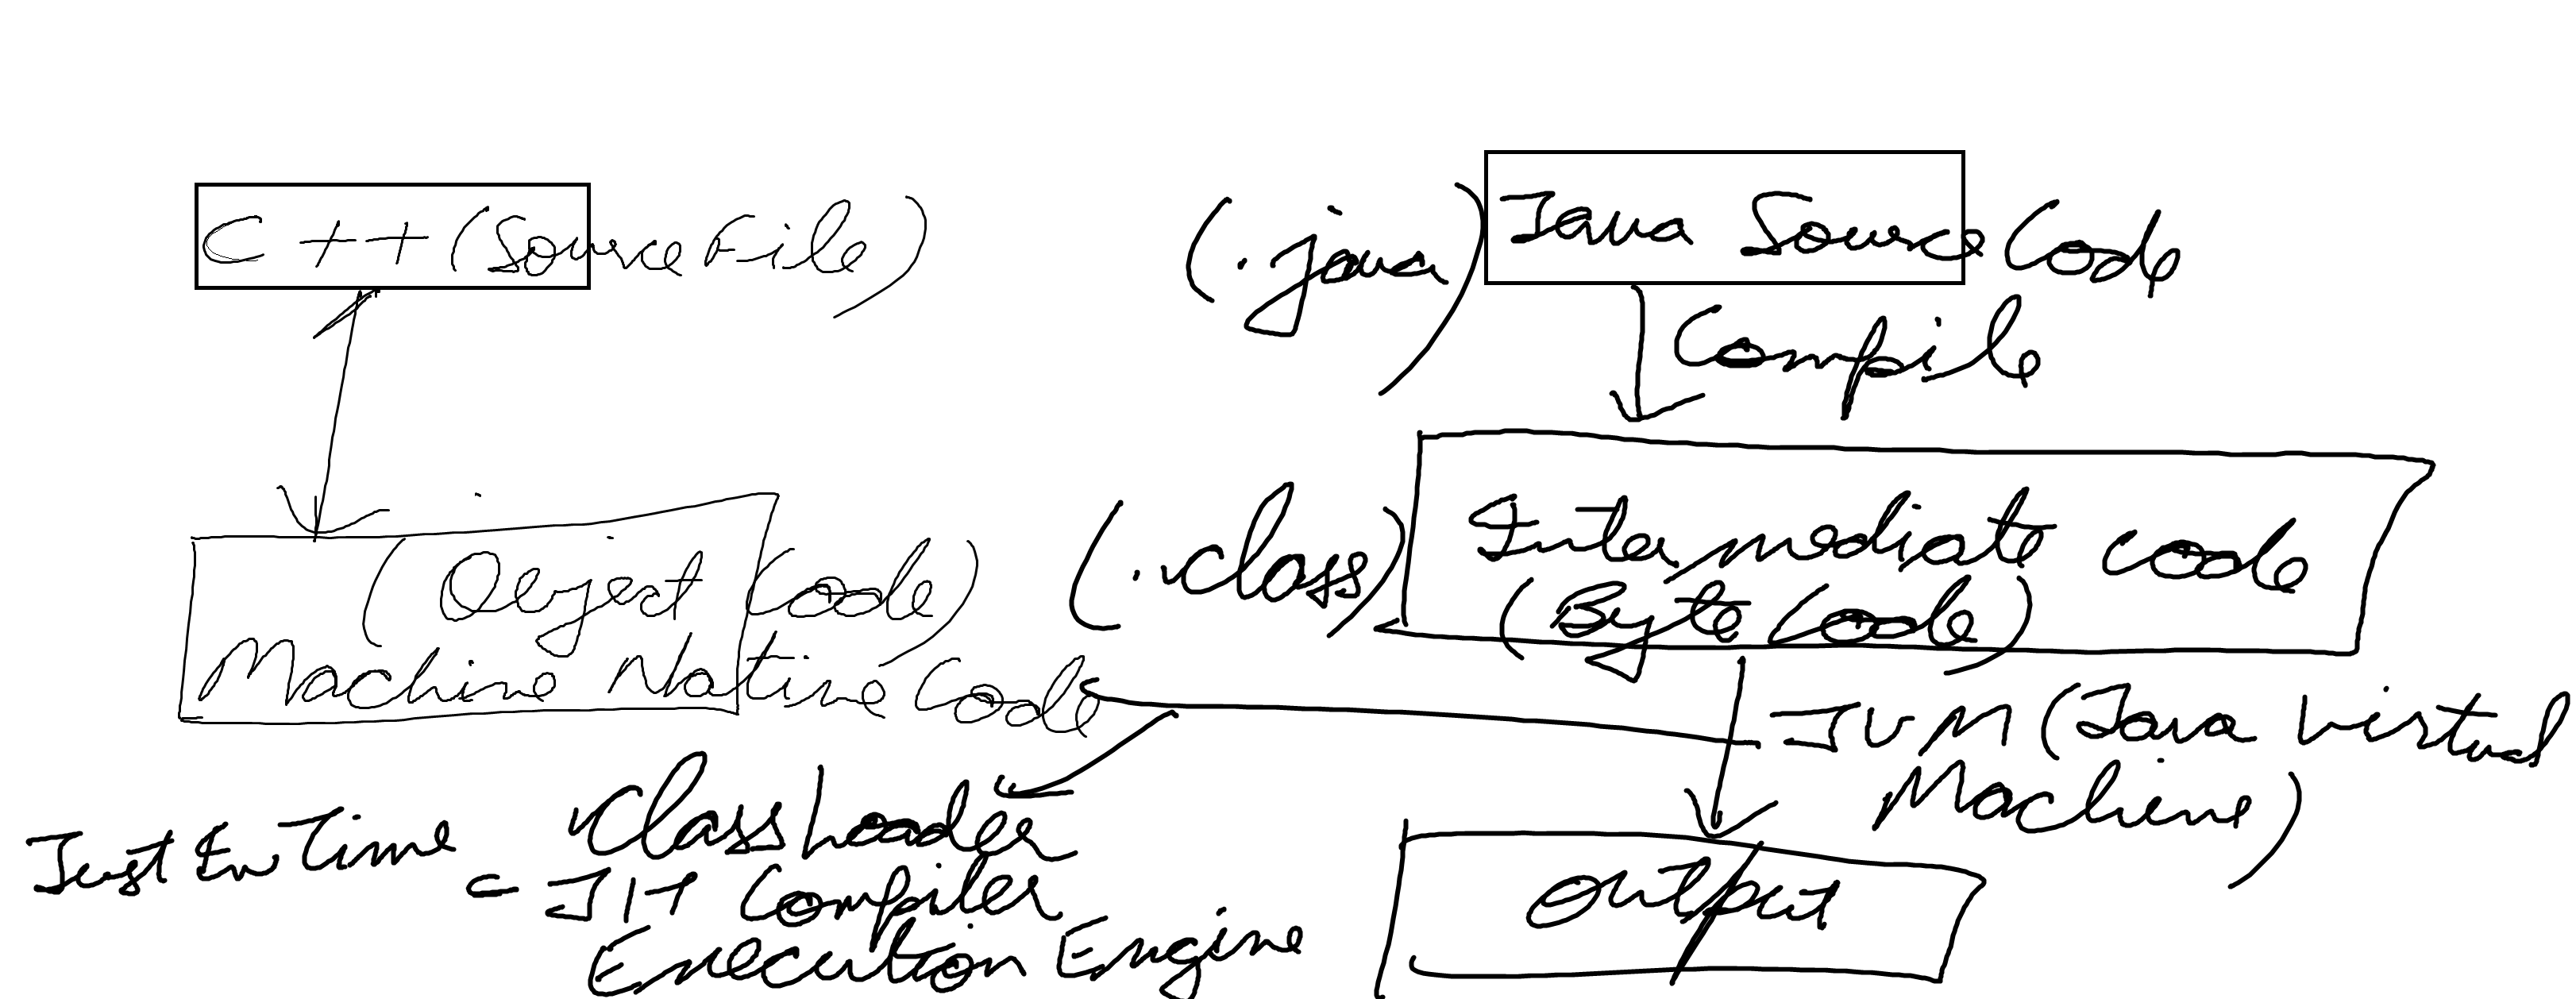 C++ (Source File)
(Object Code)
Machine Native Code
(.java) Java Source Code
Compile
(.class) Intermediate code
(Byte Code)
JVM (Java Virtual
Machine)
output
Class Loader
Just In Time = JIT Compiler
Execution Engine